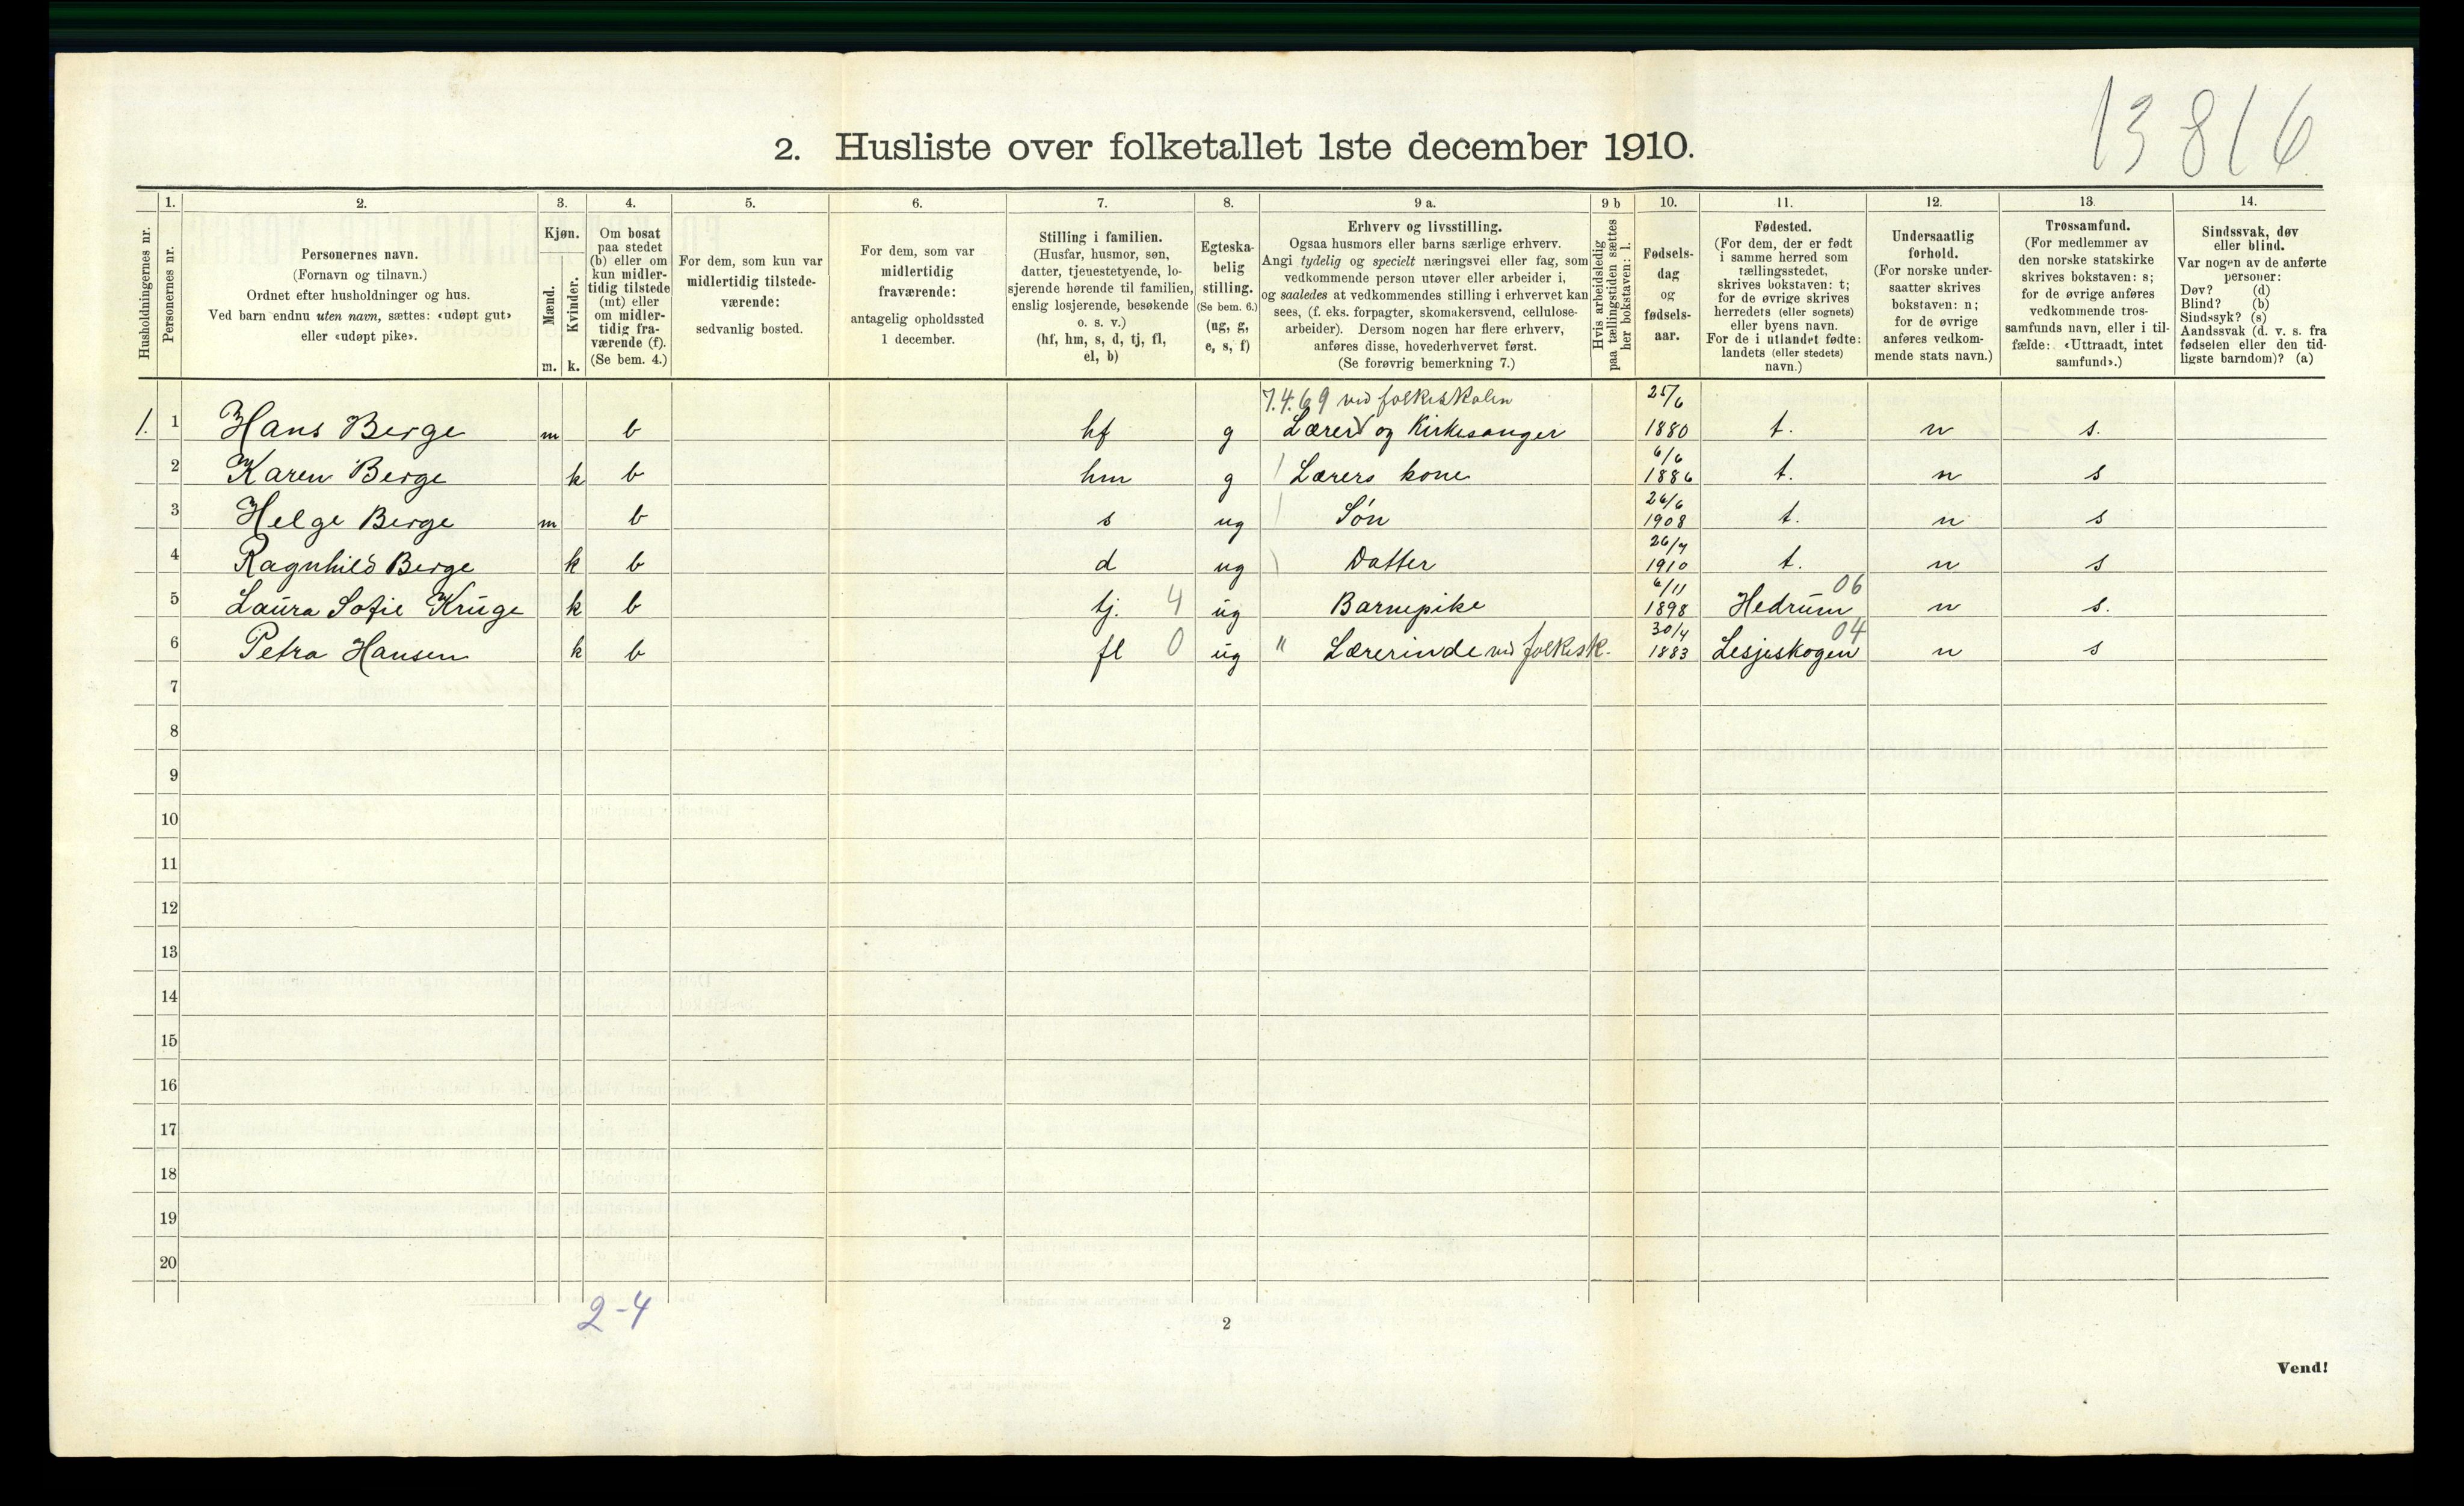 13816
2. Husliste over folketallet 1ste december 1910.
Husholdningernes nr.
1.
Personernes nr.
2.
Personernes navn.
(Fornavn og tilnavn.)
Ordnet efter husholdninger og hus.
Ved barn endnu uten navn, sættes: «udøpt gut»
eller «udøpt pike».
3.
Kjøn.
Mænd.
Kvinder.
m. k.
4.
Om bosat
paa stedet
(b) eller om
kun midler-
tidig tilstede
(mt) eller
om midler-
tidig fra-
værende (f).
(Se bem. 4.)
5.
For dem, som kun var
midlertidig tilstede-
værende:
sedvanlig bosted.
6.
For dem, som var
midlertidig
fraværende:
antagelig opholdssted
1 december.
7.
Stilling i familien.
(Husfar, husmor, søn,
datter, tjenestetyende, lo-
sjerende hørende til familien,
enslig losjerende, besøkende
o. s. v.)
(hf, hm, s, d, tj, fl,
el, b)
8.
Egteska-
belig
stilling.
(Se bem. 6.)
(ug, g,
e, s, f)
9 a.
Erhverv og livsstilling.
Ogsaa husmors eller barns særlige erhverv.
Angi tydelig og specielt næringsvei eller fag, som
vedkommende person utøver eller arbeider i,
og saaledes at vedkommendes stilling i erhvervet kan
sees, (f. eks. forpagter, skomakersvend, cellulose-
arbeider). Dersom nogen har flere erhverv,
anføres disse, hovederhvervet først.
(Se forøvrig bemerkning 7.)
9 b
Hvis arbeidsledig
paa tællingstiden sættes
her bokstaven: l.
10.
Fødsels-
dag
og
fødsels-
aar.
11.
Fødested.
(For dem, der er født
i samme herred som
tællingsstedet,
skrives bokstaven: t;
for de øvrige skrives
herredets (eller sognets)
eller byens navn.
For de i utlandet fødte:
landets (eller stedets)
navn.)
12.
Undersaatlig
forhold.
(For norske under-
saatter skrives
bokstaven: n;
for de øvrige
anføres vedkom-
mende stats navn.)
13.
Trossamfund.
(For medlemmer av
den norske statskirke
skrives bokstaven: s;
for de øvrige anføres
vedkommende tros-
samfunds navn, eller i til-
fælde: «Uttraadt, intet
samfund».)
14.
Sindssvak, døv
eller blind.
Var nogen av de anførte
personer:
Døv? (d)
Blind? (b)
Sindssyk? (s)
Aandssvak (d. v. s. fra
fødselen eller den tid-
ligste barndom)? (a)
7.4.69 ved folkeskolen 25/6
1. 1 Hans Berge m b hf g Lærer og Kirkesanger 1880 t. n s.
6/6
2 Karen Berge k b hm g Lærers kone 1886 t. n s
26/6
3 Helge Berge m b s ug Søn 1908 t. n s
26/4
4 Ragnhild Berge k b d ug Datter 1910 t. n s
6/11 06
5 Laura Sofie Kruge k b tj. 4 ug Barnepike 1898 Hedrum n s.
30/4 04
6 Petra Hansen k b fl 0 ug " Lærerinde ved folkesk. 1883 Lesjeskogen n s
7
8
9
10
11
12
13
14
15
16
17
18
19
20
2-4
2
Vend!